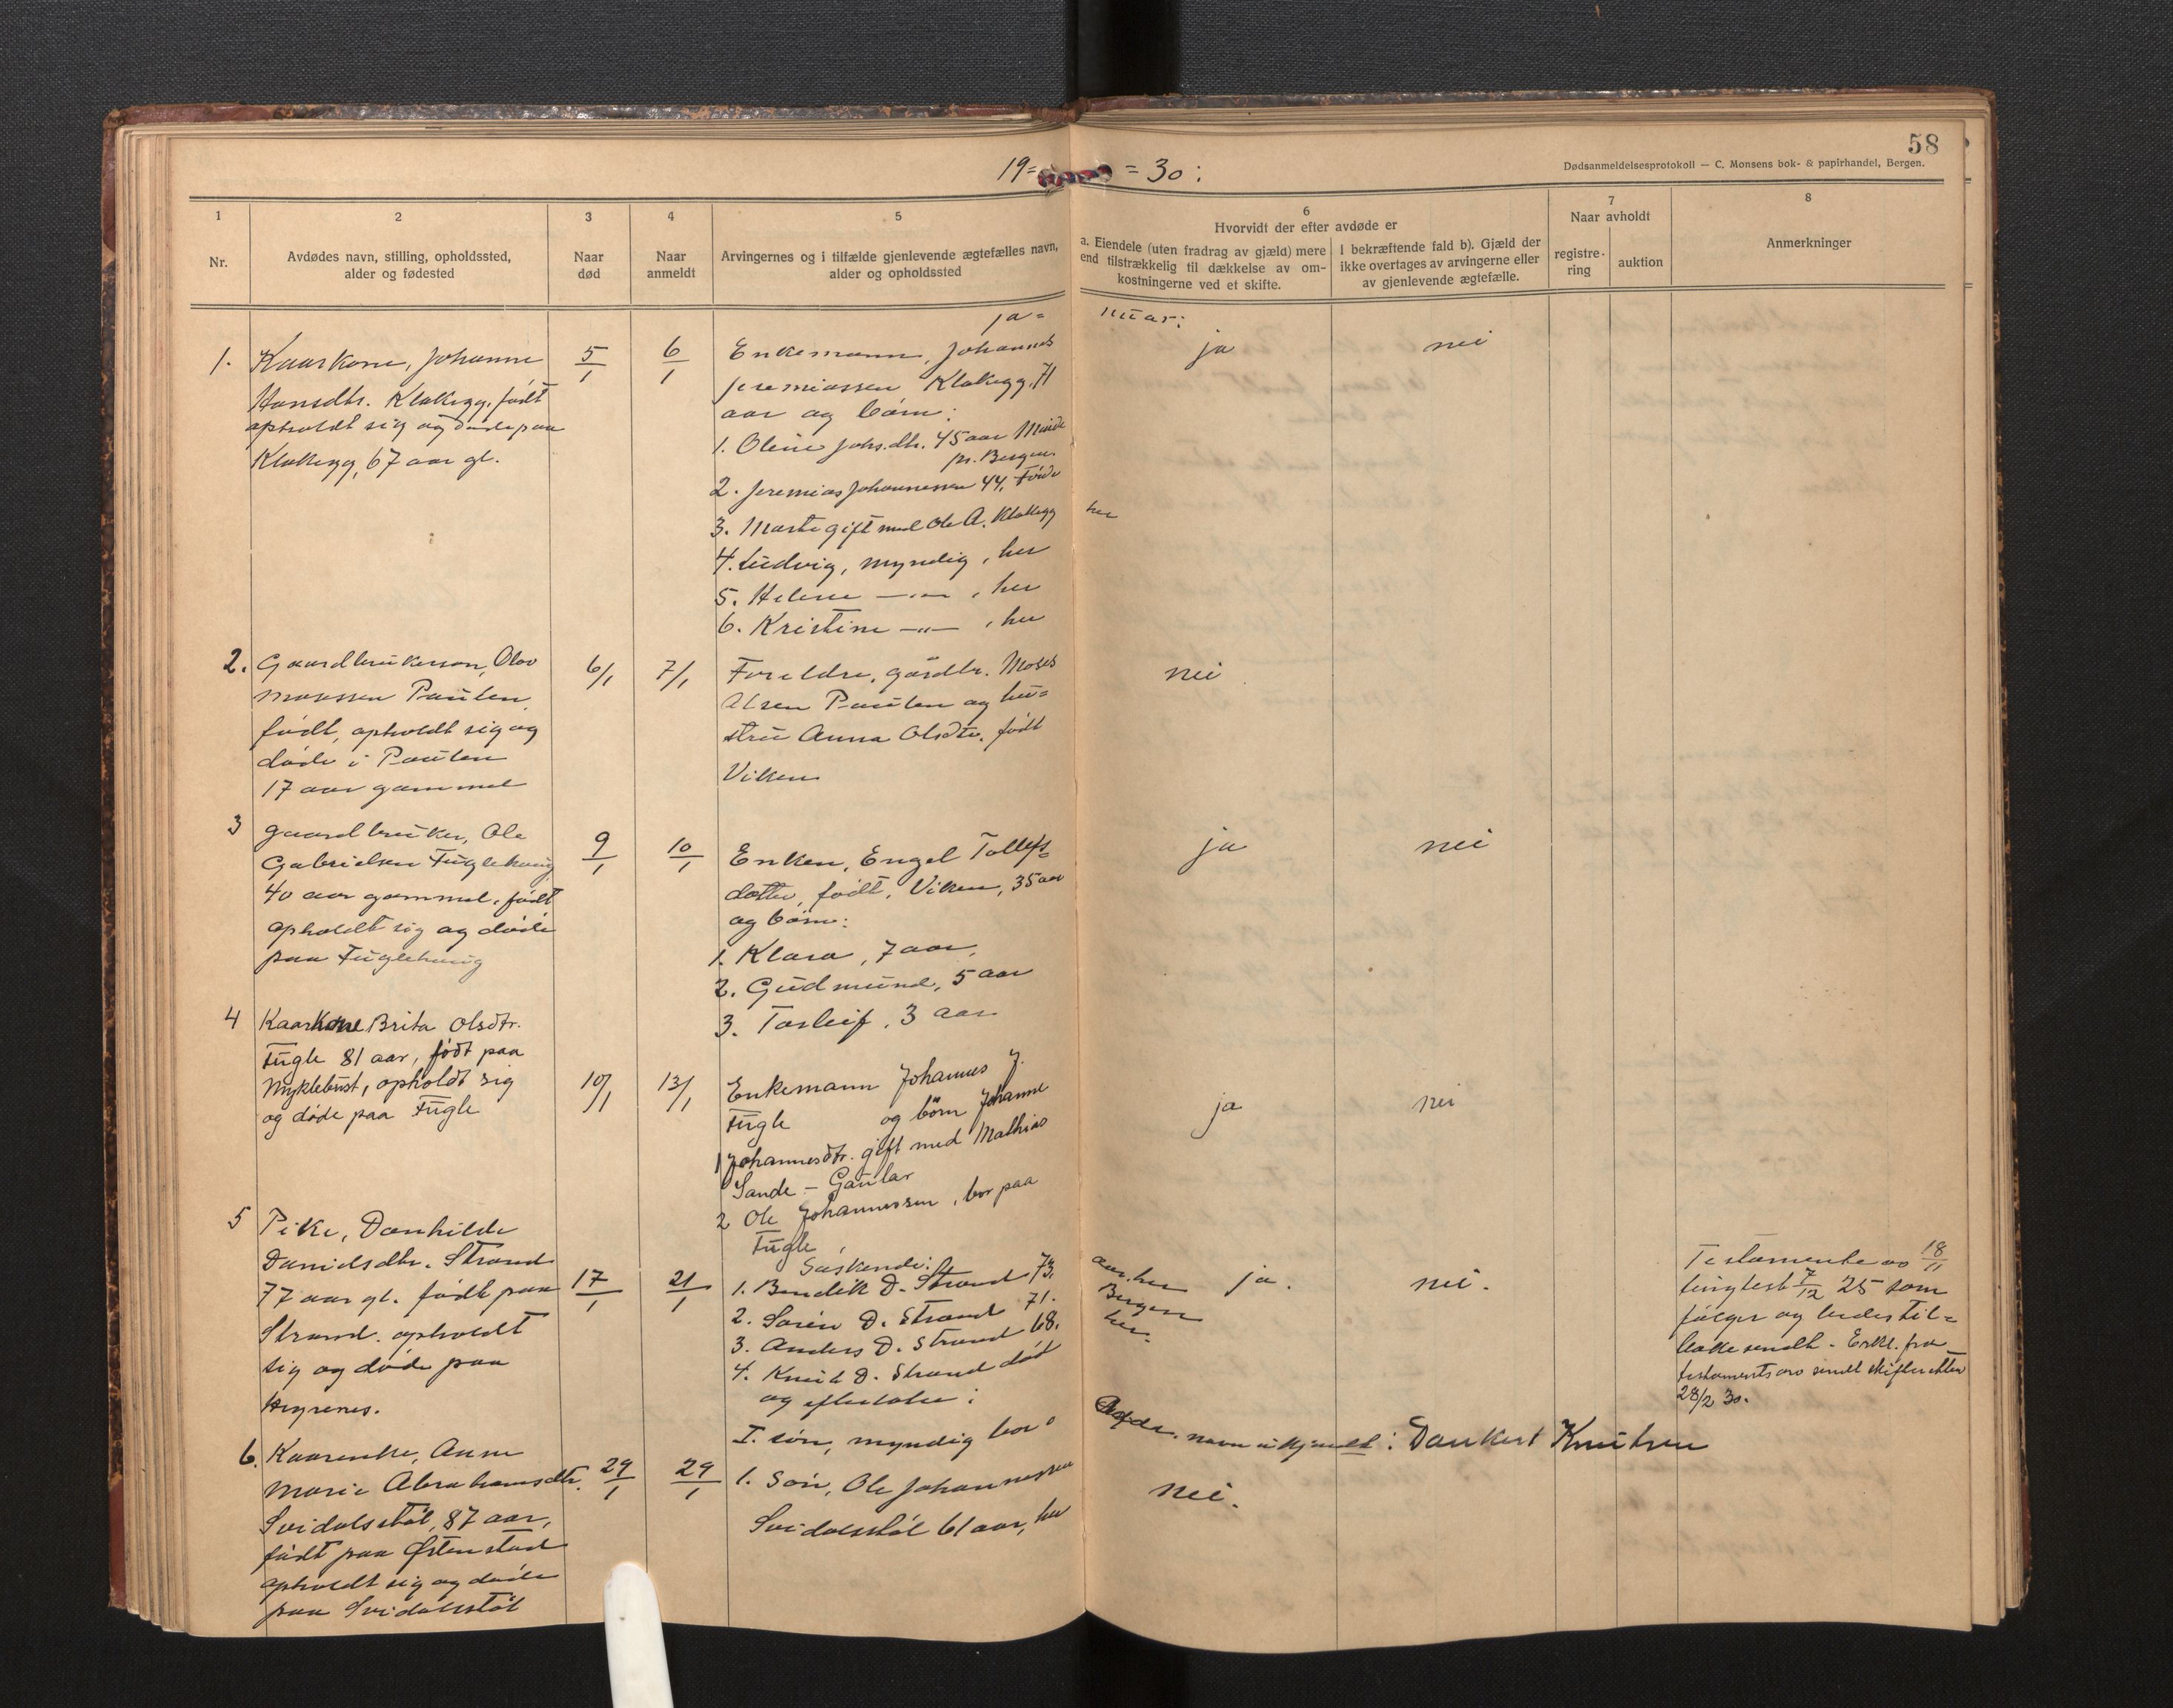 58
Dødsanmeldelsesprotokoll — C. Monsens bok- & papirhandel, Bergen.
19= = 30:
1
Nr.
2
Avdødes navn, stilling, opholdssted,
alder og fødested
3
Naar
død
4
Naar
anmeldt
5
Arvingernes og i tilfælde gjenlevende ægtefælles navn,
alder og opholdssted
6
Hvorvidt der efter avdøde er
a. Eiendele (uten fradrag av gjæld) mere
end tilstrækkelig til dækkelse av om-
kostningerne ved et skifte.
I bekræftende fald b). Gjæld der
ikke overtages av arvingerne eller
av gjenlevende ægtefælle.
7
Naar avholdt
registre-
ring
auktion
8
Anmerkninger
ja= nuar:
1.
Kaarkone, Johanne
Hansdtr. Klakegg, født
opholdt sig og døde paa
Klakegg, 67 aar gl.
5/1
6/1
Enkemann, Johannes
Jeremiassen Klakegg, 71
aar og børn:
1. Oline Johs.dtr. 45 aar Minde
pr. Bergen.
2. Jeremias Johannessen 44, Førde
3. Marte gift med Ole A. Klakegg her
4. Ludvig, myndig, her
5. Helene —"—, her
6. Kristine —"—, her
ja
nei
2.
Gaardbrukersøn, Olav
Mosessen Paulen,
født, opholdt sig og
døde i Paulen
17 aar gammel
6/1
7/1
Foreldre, gårdbr. Moses
Olsen Paulen og hu=
stru Anna Olsdtr. født
Viken
nei
3
Gaardbruker, Ole
Gabrielsen Fuglehaug
40 aar gammel, født
opholdt sig og døde
paa Fuglehaug
9/1
10/1
Enken, Engel Tollefs=
dotter, født, Viken, 35 aar
og børn:
1. Klara, 7 aar,
2. Gudmund, 5 aar
3. Torleif, 3 aar
ja
nei
4
Kaarkone Brita Olsdtr.
Fugle 81 aar, født paa
Myklebust, opholdt sig
og døde paa Fugle
10/1
13/1
Enkemann Johannes J.
Fugle og børn Johanne
1 Johannesdtr. gift med Mathias
Sande – Gaular
2 Ole Johannessen, bor paa
Fugle,
ja
nei
5
Pike, Danhilde
Danielsdtr. Strand
77 aar gl. født paa
Strand. opholdt
sig og døde paa
17/1
21/1
Søskende:
1. Bendik D. Strand 73, aar. her
2. Søren D. Strand 71. Bergen
3. Anders D. Strand 68. her.
4. Knut D. Strand død
og efterlater:
I. søn, myndig bor
navn ukjendt: Dankert Knutsen
ja.
nei.
Testamente av 18/11
tinglest 7/12 25 som
følger og bedes til=
bake sendt. Erkl. fra
testamentsarv sendt skifteretten
28/2 30.
6.
Kaarenke, Anne
Marie Abrahamsdtr.
Svidalsstøl, 87 aar,
født paa Østenstad
opholdt sig og døde
paa Svidalsstøl
29/1
29/1
1. Søn, Ole Johannessen
Svidalsstøl 61 aar, her
nei.